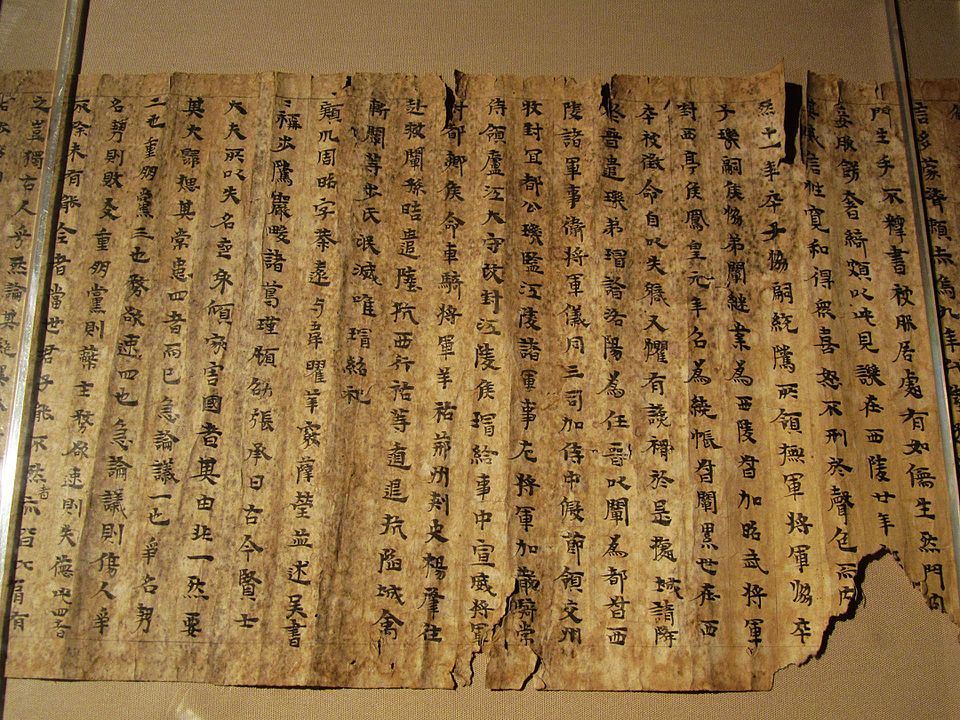 言多蒙濟賴赤烏九年代
門生手不釋書被服居處有如儒生然門內
妻妾服飾奢綺頗以此見譏在西陵廿年
其威信性寬和得衆喜怒不形於聲色而内
然十一年卒子協嗣統騭所領撫軍將軍協卒
子璣嗣侯協弟闡繼業為西陵督加昭武將軍
封西亭侯鳳皇元年召為繞帳督闡累世在西
卒被徵命自以失職又懼有讒禍於是據城請降
於晉遣璣弟璿詣洛陽為任晉以闡為都督西
陵諸軍事衛將軍儀同三司加侍中假節領交州
牧封宜都公璣監江陵諸軍事左將軍加散騎常
侍領廬江太守改封江陵侯璿給事中宣威將軍
封都鄉侯命車騎將軍羊祜荊州刾史楊肇往
赴救闡孫晧遣陸抗西行祜等遁退抗陷城禽
斬闡等步氏泯滅唯璿紹祀
潁川周昭字恭遠与韋曜華覈薛瑩並述吳書
稱步騭嚴畯諸葛瑾顧劭張承曰古今賢士
大夫所以失名喪身傾家害國者其由非一然要
其大歸惣其常患四者而已急論議一也爭名勢
二也重朋黨三也務欲速四也急論議則傷人爭
名勢則敗友重朋黨則蔽主務欲速則失德此四者
不除未有能全者當世君子能不然者亦比肩有
之豈獨古人乎然論其絕異